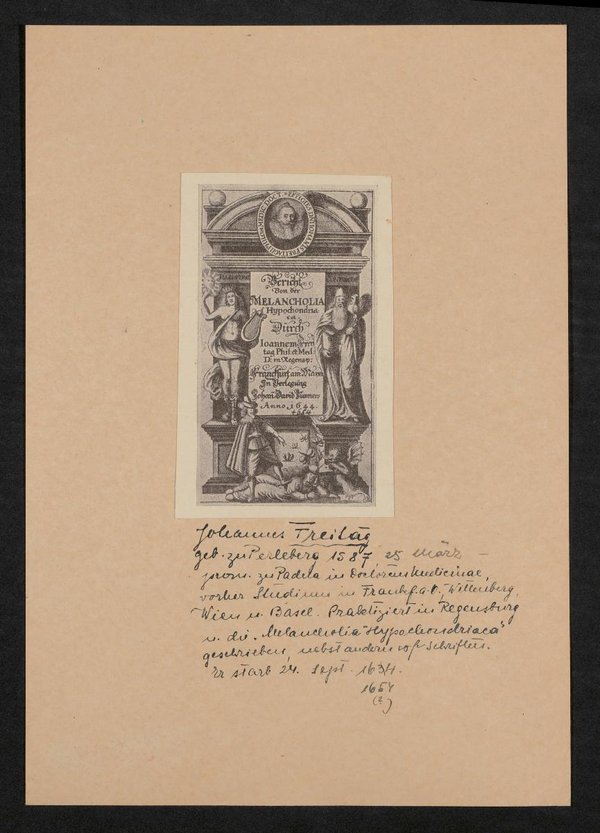 EFFIGIES IOHANNIS FREITAGII PHIL. ET MEDIC. DOCT.
Bericht
Von der
MELANCHOLIA
Hypochondria
ca
Durch
Ioannem Frey
tag Phil. et Med:
D: in Regensp:
Franckfurt am Mayn
In Verlegung
Johan David
Anno. 1644
Johannes Freitag
geb. zu Perleberg 1587 25 März –
prom. zu Padua in Doctorem Medicinae,
vorher Studium in Frankf. a. O., Wittenberg,
Wien u. Basel. Praktiziert in Regensburg
u. die „Melancholia Hypochondriaca"
geschrieben, nebst andern Schriften.
Er starb 24. Sept. 1634.
1654
(?)